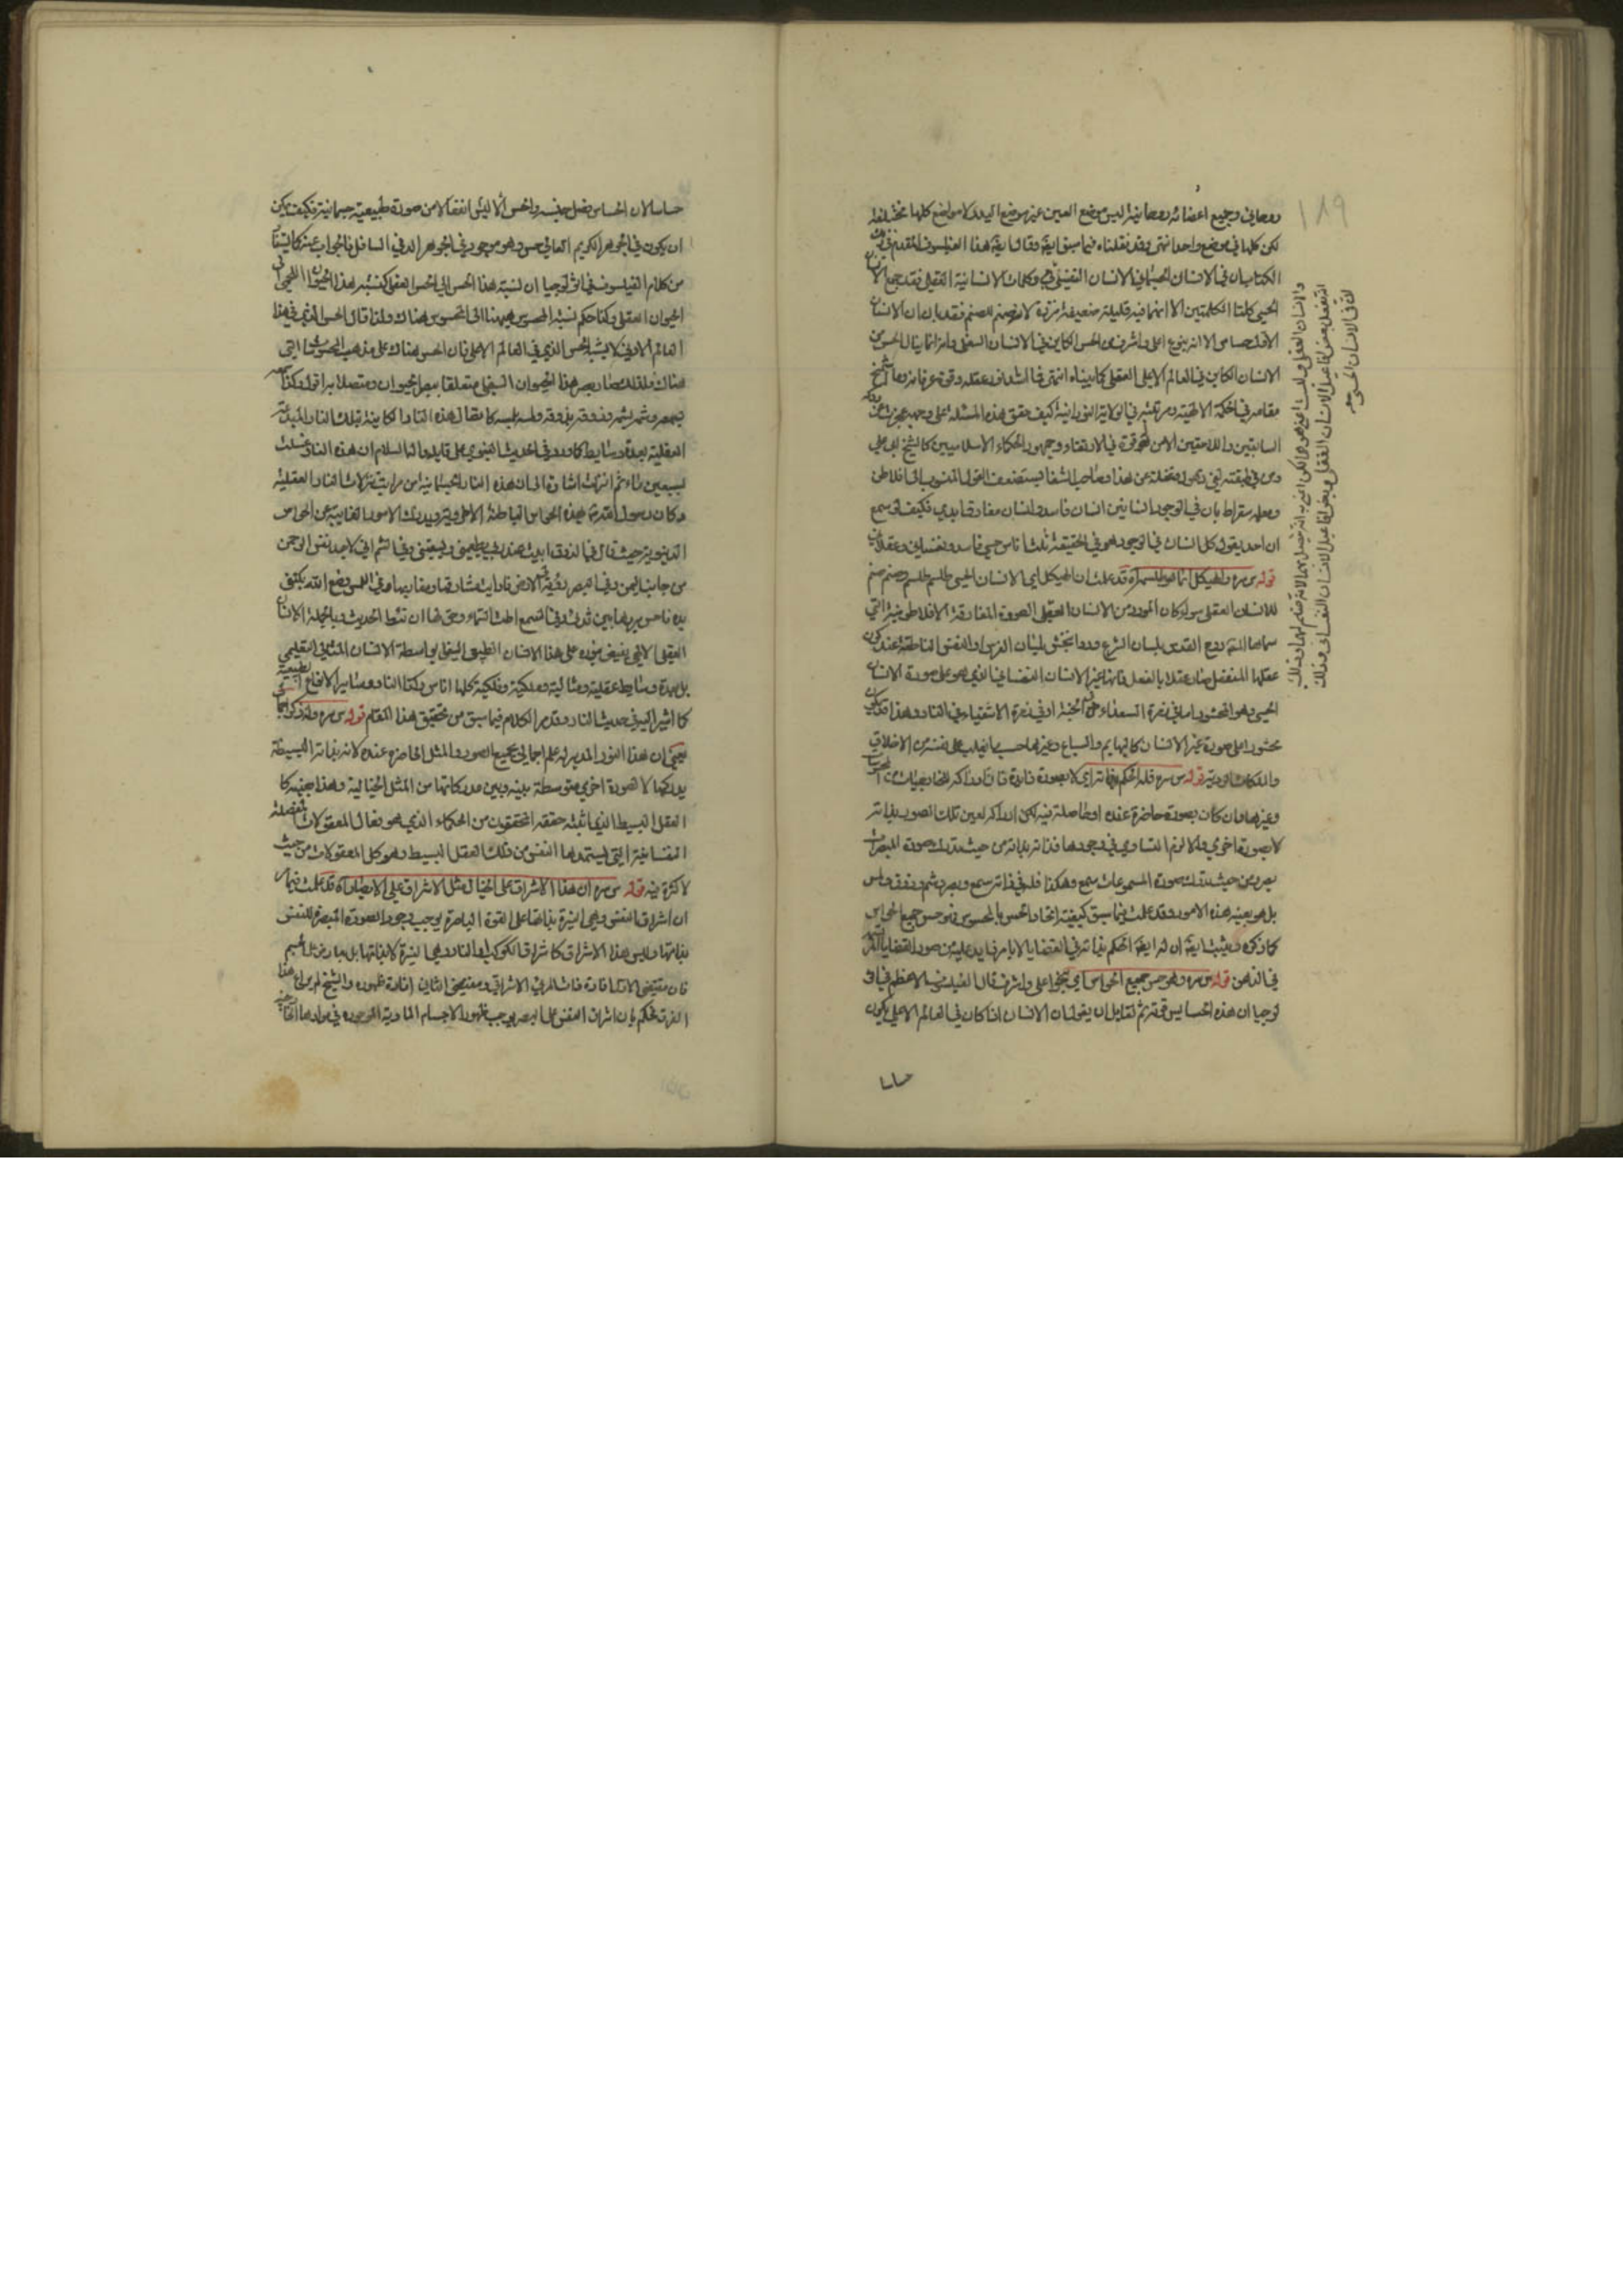 ١٨٩
روحاني وجميع اعضائه روحانية ليس موضع العين غير موضع اليد ولا مواضع كلها مختلفة
لكن كلها في موضع واحد انتهى وقد نقلناه فيما سبق ايضا وقال ايضا هذا الفيلسوف المقدم في
الكتاب ان في الانسان الجسماني الانسان النفساني وكلمات الانسانية العقلي فقد جمع الانسان
الحسي كلتا الكلمتين الا انهما فيه قليلة ضعيفة نزرة لانه صنم للصنم فقد بان ان الانسان
الاول حساس الا انه بنوع اعلى واشرف من الحس الكاين في الانسان السفلي وانه انما ينال الحس من
الانسان الكاين في العالم الاعلى العقلي كما بيناه انتهى فما اشد نور عقله وقوة عرفانه وما اشمخ
مقامه في الحكمة الالهية ومرتبته في الولاية النورانية كيف حقق هذه المسئلة على وجه عجزت عن
السابقين واللاحقين الا من لحق قوة في الارتقاء وجمهور الحكماء الاسلاميين كالشيخ ابي علي
ومن في طبقته لفي ذهول وغفلة عن هذا وصاحب الشفا يستضعف القول المنسوب الى افلاطن
ومعلمه سقراط بان في الوجود انسانين انسان فاسد وانسان مفارق ابدي فكيف لو سمع
ان احد يقول كل انسان في الوجود هو في الحقيقة ثلثة اناس حسي فاسد ونفساني وعقلاني
قوله س سره والهيكل انما هو طلسمه اه قد علمت ان الهيكل اي الانسان الحسي طلسم طلسم وصنم صنم
للانسان العقلي سواء كان المراد من الانسان العقلي الصورة المفارقة الافلاطونية التي
سماها الشيخ روح القدس بلسان الشرع ورواتخش بلسان الفرس او النفس الناطقة عند كون
عقلها المنفعل صار عقلا بالفعل فانها غير الانسان النفساني الذي هو على صورة الانسان
الحسي وهو المحشور اما في زمرة السعداء في الجنة او في زمرة الاشقياء في النار وهذا قد يكون
محشورا على صورة غير الانسان كالبهايم والسباع وغيرها حسب ما يغلب على نفسه من الاخلاق
والملكات الردية قوله س سره فله الحكم بذاته اي لا بصورة زائدة فان ادراكه للخارجيات من المحسوسات
وغيرها وان كان بصورة حاضرة عنده او حاصلة فيه لكن ادراكه لعين تلك الصور بذاته
لا بصورة اخرى والا لزم التساوي في وجودها فذاته بذاته من حيث يدرك صورة المبصرات
بصر ومن حيث يدرك صورة المسموعات سمع وهكذا فله في ذاته سمع وبصر وشم وذوق ولمس
بل هو بعينه هذه الامور وقد علمت فيما سبق كيفية اتحاد الحس بالمحسوس فهو حس جميع الحواس
كما ذكره ويثبت ايضا ان له ايضا الحكم بذاته في القضايا لا بامر زايد عليه من صور القضايا
في الذهن قوله س سره وهو حس جميع الحواس اي بنحو اعلى واشرف قال الفيلسوف الاعظم في اثو
لوجيا ان هذه الحسايس قوته ثم لقايل ان يقول ان الانسان اذا كان في العالم الاعلى يكون
حساسا
والانسان العقلي ولست اعني هو هما لكن اعني به انه متصل بهما لانه صنم لهما وذلك
انه يفعل بعض افاعيل الانسان العقلي وبعض افاعيل الانسان النفساني وذلك
ان في الانسان الحسي
حساسا لان الحساس فصل جنسه والحس الا لشئ انفعالا من صورة طبيعية جسمانية فكيف يمكن
ان يكون في الجوهر الكريم العالي حس وهو موجود في الجوهر الدني السافل فالجواب عنه كما يستفاد
من كلام الفيلسوف في اثولوجيا ان نسبة هذا الحس الى الحس العقلي كنسبة هذا الحيوان اللحمي الى
الحيوان العقلي وكذا حكم نسبة المحسوس ههنا الى المحسوس هناك ولذا قال الحس الذي في هذا
العالم الادنى لا يشبه الحس الذي في العالم الاعلى فان الحس هناك على مذهب المحسوسات التي
هناك فلذلك صار بصر هذا الحيوان السفلي متعلقا ببصر الحيوان ومتصلا به اقول وكذا سمعه
بسمعه وشمه بشمه وذوقه بذوقه ولمسه بلمسه كما يقال هذه النار الكاينة بتلك النار المبدعة
العقلية بعدة وسايط كما ورد في الحديث النبوي على قايله واله السلام ان هذه النار غسلت
بسبعين ماء ثم انزلت اشارة الى ان هذه النار الجسمانية من مراتب تنزلات النار العقلية
وكان رسول الله ص بهذه الحواس الباطنة الاخروية ويدرك الامور الغايبة عن الحواس
الدنيوية حيث قال في الذوق ابيت عند ربي يطعمني ويسقيني وفي الشم اني لاجد نفس الرحمن
من جانب اليمن وفي البصر زويت لي الارض فاريت مشارقها ومغاربها وفي اللمس وضع الله بكتفي
يده فاحس بردها بين ثديي وفي السمع اطت السماء وحق لها ان تئط الحديث وبالجملة الانسان
العقلي الالهي يفيض بنوره على هذا الانسان الطبيعي السفلي بواسطة الانسان المثالي القليمي
بل بعدة وسايط عقلية ومثالية وملكية وفلكية كلها اناس وكذا النار وساير الانواع الطبيعية
كما اشير اليه في حديث النار وقد مر الكلام فيما سبق من تحقيق هذا المقام قوله س سره وله ذكر اجمالي
يعني ان هذا النور المدبر له علم اجمالي بجميع الصور والمثل الحاضرة عنده لانه بذاته البسيطة
يدركها لا بصورة اخرى متوسطة بينه وبين مدركاتها من المثل الخيالية وهذا بعينه كا
العقل البسيط الذي اثبته حققه المحققون من الحكماء الذي هو فعال المعقولات المفصلة
النفسانية التي تستمدها النفس من ذلك العقل البسيط وهو كل المعقولات من حيث
لا كثرة فيه قوله س سره ان هذا الاشراق على الخيال مثل الاشراق على الابصار اه قد علمت فيما مر
ان اشراق النفس وهي النيرة بذاتها على القوة الباصرة يوجب وجود الصورة المبصرة للنفس
بذاتها وليس هذا الاشراق كاشراق الكوكب او النار وهما النيرة لا بذاتها بل بعارض
فان مقتضى الاول افادة ذات المرئي الاشراقي ومقتضى الثاني افادة ظهوره والشيخ لم يراع هذا
الفرق فحكم بان اشراق النفس على البصر يوجب ظهور الاجسام المادية الموجودة في موادها الخارجية